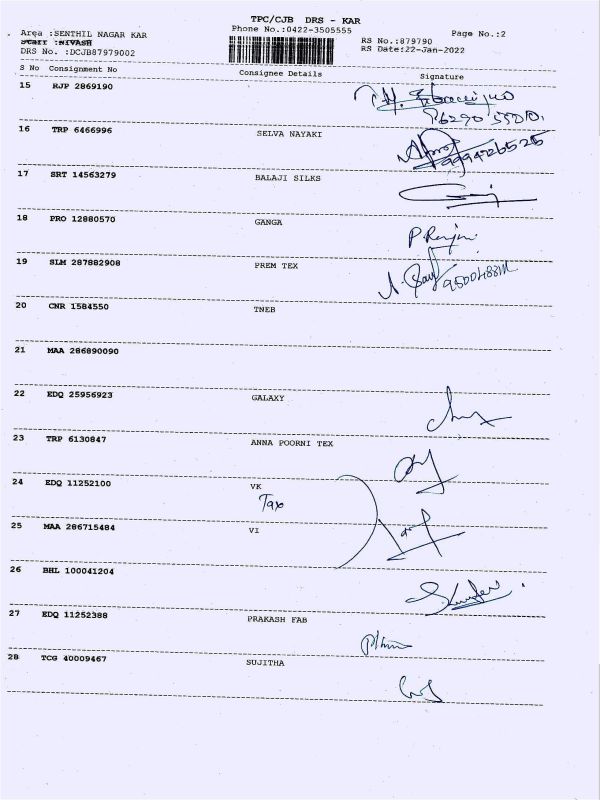 TPC/CJB DRS - KAR
Area :SENTHIL NAGAR KAR
Phone No.:0422-3505555
Page No.:2
Staff :NIVASH
RS No.:879790
DRS No. :DCJB87979002
RS Date:22-Jan-2022
S No Consignment No Consignee Details Signature
15 RJP 2869190
16 TRP 6466996 SELVA NAYAKI
17 SRT 14563279 BALAJI SILKS
18 PRO 12880570 GANGA
P. Ranjini
19 SLM 287882908 PREM TEX
20 CNR 1584550 TNEB
21 MAA 286890090
22 EDQ 25956923 GALAXY
23 TRP 6130847 ANNA POORNI TEX
24 EDQ 11252100 VK
Tax
25 MAA 286715484 VI
26 BHL 100041204
27 EDQ 11252388 PRAKASH FAB
28 TCG 40009467 SUJITHA